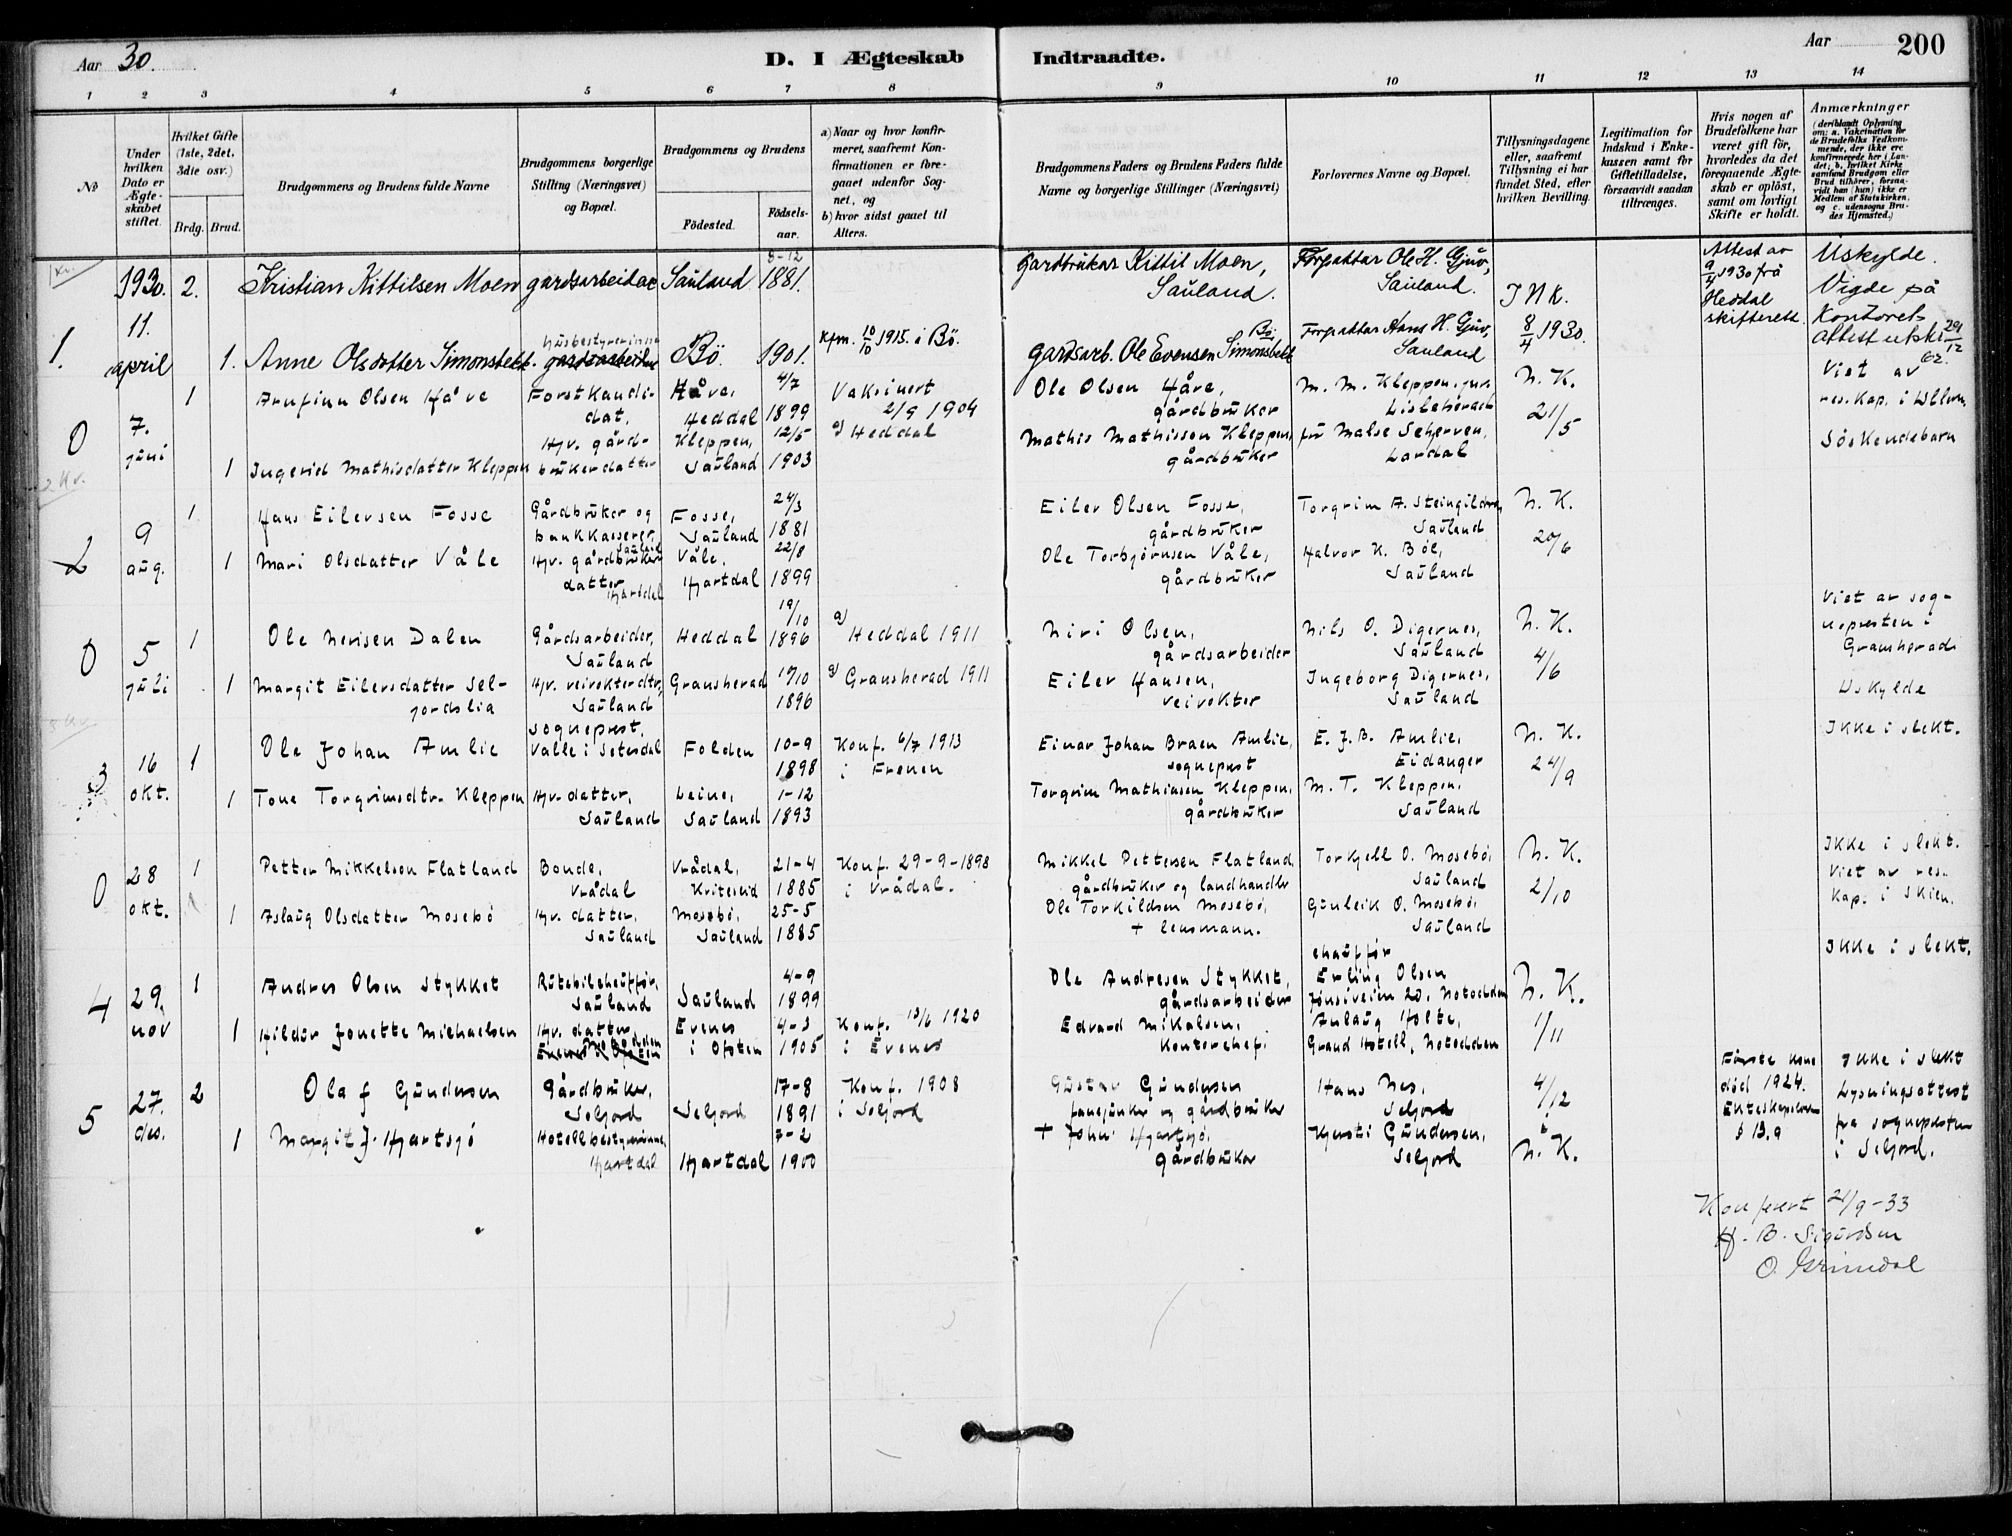 Aar 30.
D. I Ægteskab Indtraadte.
Aar 200
1 2 3 4 5 6 7 8 9 10 11 12 13 14
No
Under hvilken Dato er Ægteskabet stiftet.
Hvilket Gifte (1ste, 2det, 3die osv.)
Brdg. Brud.
Brudgommens og Brudens fulde Navne
Brudgommens borgerlige Stilling (Næringsvei) og Bopæl.
Brudgommens og Brudens
Födested.
Födsels-aar.
a) Naar og hvor konfirmeret, saafremt Konfirmationen er foregaaet udenfor Sognet, og
b) hvor sidst gaaet til Alters.
Brudgommens Faders og Brudens Faders fulde Navne og borgerlige Stillinger (Næringsvei)
Forlovernes Navne og Bopæl.
Tillysningsdagene eller, saafremt Tillysning ei har fundet Sted, efter hvilken Bevilling.
Legitimation for Indskud i Enkekassen samt for Giftetilladelse, forsaavidt saadan tiltrænges.
Hvis nogen af Brudefolkene har været gift før, hvorledes da det foregaaende Ægteskab er opløst, samt om lovligt Skifte er holdt.
Anmærkninger (deriblandt Oplysning om: a. Vakcination for de Brudefolks Vedkommende, der ikke ere konfirmerede her i Landet; b. hvilket Kirkesamfund Brudgom eller Brud tilhører, forsaavidt han (hun) ikke er Medlem af Statskirken, og c. udensogns Brudes Hjemsted.)
1930. 2. Kristian Kittilsen Moen gardsarbeidar Sauland 8-12 1881.
Gardbrukar Kittil Moen, Sauland.
Forpaktar Ole H. Gjuv, Sauland.
I N K. 8/4 1930.
Attest av 9/4 1930 frå Heddal skifterett
Uskylde. Vigde på Kontoret
attest utskr. 29/12 62.
1. 11. april 1. Anne Olsdotter Simonsbekk. husbestyrerinne Bø. 1901. Kfm. 10/10 1915. i Bø.
Gardsarb. Ole Evensen Simonsbekk Bø
Forpaktar Hans H. Gjuv, Sauland
0 7. juni 1 Arnfinn Olsen Håve Forstkandidat, Håve, Heddal 4/7 1899 Vaksinert 2/9 1904
a) Heddal
Ole Olsen Håve, gårdbruker
M. M. Kleppen, jur. Listeherad
N. K. 21/5
Viet av res. Kap. i Ullern.
1 Ingerid Mathisdatter Kleppen Hjv. gårdbrukerdatter Kleppen, Sauland 12/5 1903
Mathis Mathisson Kleppen, gårdbruker
frü Malse Scherven, Lardal
Søskendebarn
2 9 aug. 1 Hans Eilersen Fosse Gårdbruker og bankkasserer Sauland Fosse, Sauland 24/3 1881
Eiler Olsen Fosse, gårdbruker
Torgrim A. Steingildra, Sauland
N. K. 20/6
1 Mari Olsdatter Våle Hjv. gårdbrukerdatter Hjartdal Våle, Hjartdal 22/8 1899
Ole Torbjørnsen Våle, gårdbruker
Halvor K. Bøl, Sauland
0 5 juli 1 Ole Nerisen Dalen Gårdsarbeider, Sauland Heddal 19/10 1896 a) Heddal 1911
Niri Olsen, gårdsarbeider
Nils O. Digernes, Sauland
N. K. 4/6
Viet av sognepresten i Gransherad
1 Margit Eilersdatter Seljordslia Hjv. veivokterdtr, Sauland Gransherad 17/10 1896 a) Gransherad 1911
Eiler Hansen, veivokter
Ingeborg Digernes, Sauland
Uskylde
3 16 okt. 1 Ole Johan Amlie sogneprest, Valle i Setesdal Folden 10-9 1898 Konf. 6/7 1913 i Frenen
Einar Johan Braen Amlie, sogneprest
E. J. B. Amlie, Eidanger
N. K. 24/9
Ikke i slekt.
1 Tone Torgrimsdtr. Kleppen Hjv. datter, Sauland Leine, Sauland 1-12 1893
Torgrim Mathiasen Kleppen, gårdbruker
M. T. Kleppen, Sauland
0 28 okt. 1 Petter Mikkelson Flatland Bonde, Vrådal Vrådal, Kviteseid 21-4 1885 Konf. 29-9-1898 i Vrådal.
Mikkel Pettersen Flatland, gårdbruker og landhandler
Torkjell O. Mosebø, Sauland
N. K. 2/10
Ikke i slekt. Viet av res. Kap. i Skien.
1 Aslaug Olsdatter Mosebø Hjv. datter, Sauland Mosebø, Sauland 25-5 1885
Ole Torkildsen Mosebø, + lensmann.
Gunleik O. Mosebø, Sauland
4 29. nov 1 Andres Olsen Stykket Rutebilchauffør, Sauland Sauland 4-9 1899
Ole Andresen Stykket, gårdsarbeider
chauffør Erling Olsen Jønsiveien 20, Notodden
N. K. 1/11
Ikke i slekt.
1 Hildur Jonette Michaelsen Hjv. datter, Notodden Evenes i Ofoten 4-3 1905 Konf. 13/6 1920 i Evenes
Edvard Mikalsen, Kontorchef.
Aulaug Holte, Grand Hotell, Notodden
5 27. des. 2 Olaf Gundersen Gårdbruker, Seljord Seljord 17-8 1891 Konf. 1908 i Seljord
Gustav Gundersen fanejunker og gårdbruker
Hans Nes, Seljord
4/12
Første kone død 1924. Ekteskapsloven § 13.9
Ikke i slekt Lysningsattest fra sognepresten i Seljord.
1 Margit J. Hjartsjø Hotellbestyrerinne, Hjartdal Hjartdal 7-2 1900
+ John Hjartsjø, gårdbruker
Kjersti Gundersen, Seljord
N. K.
Konferert 21/9-33
H. B. Sigurdsen
O. Grimdal